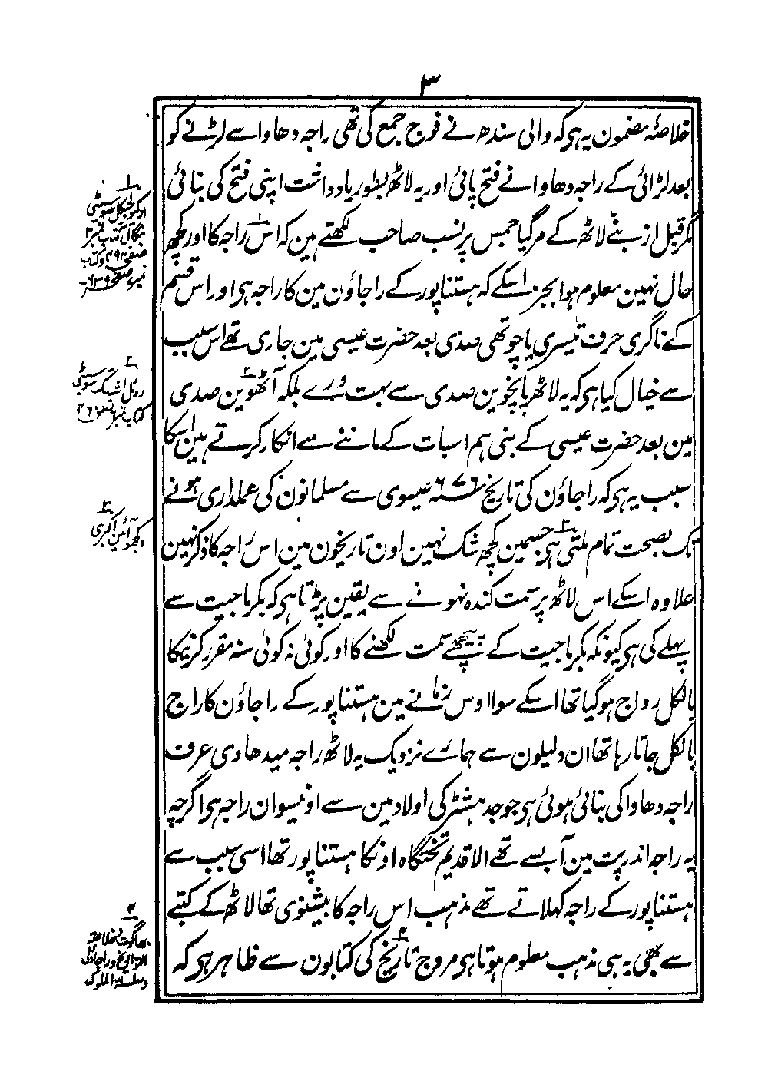 ۳
خلاصۂ مضمون یہ ہی کہ والی سندھ نے فوج جمع کی تھی راجہ دھاوا سے لڑنے کو
بعد لڑائی کے راجہ دھاوا نے فتح پائی اور یہ لاٹھ بطور یادداشت اپنی فتح کی بنائی
مگر قبل از بننے لاٹھ کے مرگیا جمس پرنسب صاحب لکھتے ہین کہ اس راجہ کا اور کچھ
حال نہین معلوم ہوا بجز اسکے کہ ہستناپور کے راجاؤن مین کا راجہ ہی اور اس قسم
کے ناگری حرف تیسری یا چوتھی صدی بعد حضرت عیسی مین جاری تھے اس سبب
سے خیال کیا ہی کہ یہ لاٹھ پانچوین صدی سے بہت ورے بلکہ آٹھوین صدی
مین بعد حضرت عیسی کے بنی ہم اسبات کے ماننے سے انکار کرتے ہین اسکا
سبب یہ ہی کہ راجاؤن کی تاریخ سنہ ۶۷۶ عیسوی سے مسلمانون کی عملداری ہونے
تک بصحت تمام ملتی ہی جسمین کچھ شک نہین اون تاریخون مین اس راجہ کا ذکر نہین
علاوہ اسکے اس لاٹھ پر سمت کندہ نہونے سے یقین پڑتا ہی کہ بکرماجیت سے
پہلے کی ہی کیونکہ بکرماجیت کے پیچھے سمت لکھنے کا اور کوئی نہ کوئی سنہ مقرر کرنیکا
بالکل رواج ہوگیا تھا اسکے سوا اوس زمانے مین ہستناپور کے راجاؤن کا راج
بالکل جاتا رہا تھا ان دلیلون سے ہمارے نزدیک یہ لاٹھ راجہ میدھاوی عرف
راجہ دھاوا کی بنائی ہوئی ہی جو جدہشٹر کی اولاد مین سے اونیسوان راجہ ہی اگرچہ
یہ راجہ اندرپت مین آبسے تھے الا قدیم تختگاہ اونکا ہستناپور تھا اسی سبب سے
ہستناپور کے راجہ کہلاتے تھے مذہب اس راجہ کا بیشنوی تھا لاٹھ کے کتبے
سے بھی یہ ہی مذہب معلوم ہوتا ہی مروج تاریخ کی کتابون سے ظاہر ہی کہ
۱
صفحہ
۲
۳
دیکھو آئین اکبری
۴
بھاگوت خلاصۃ
التواریخ و راجاولی
و سلسلۃ الملوک